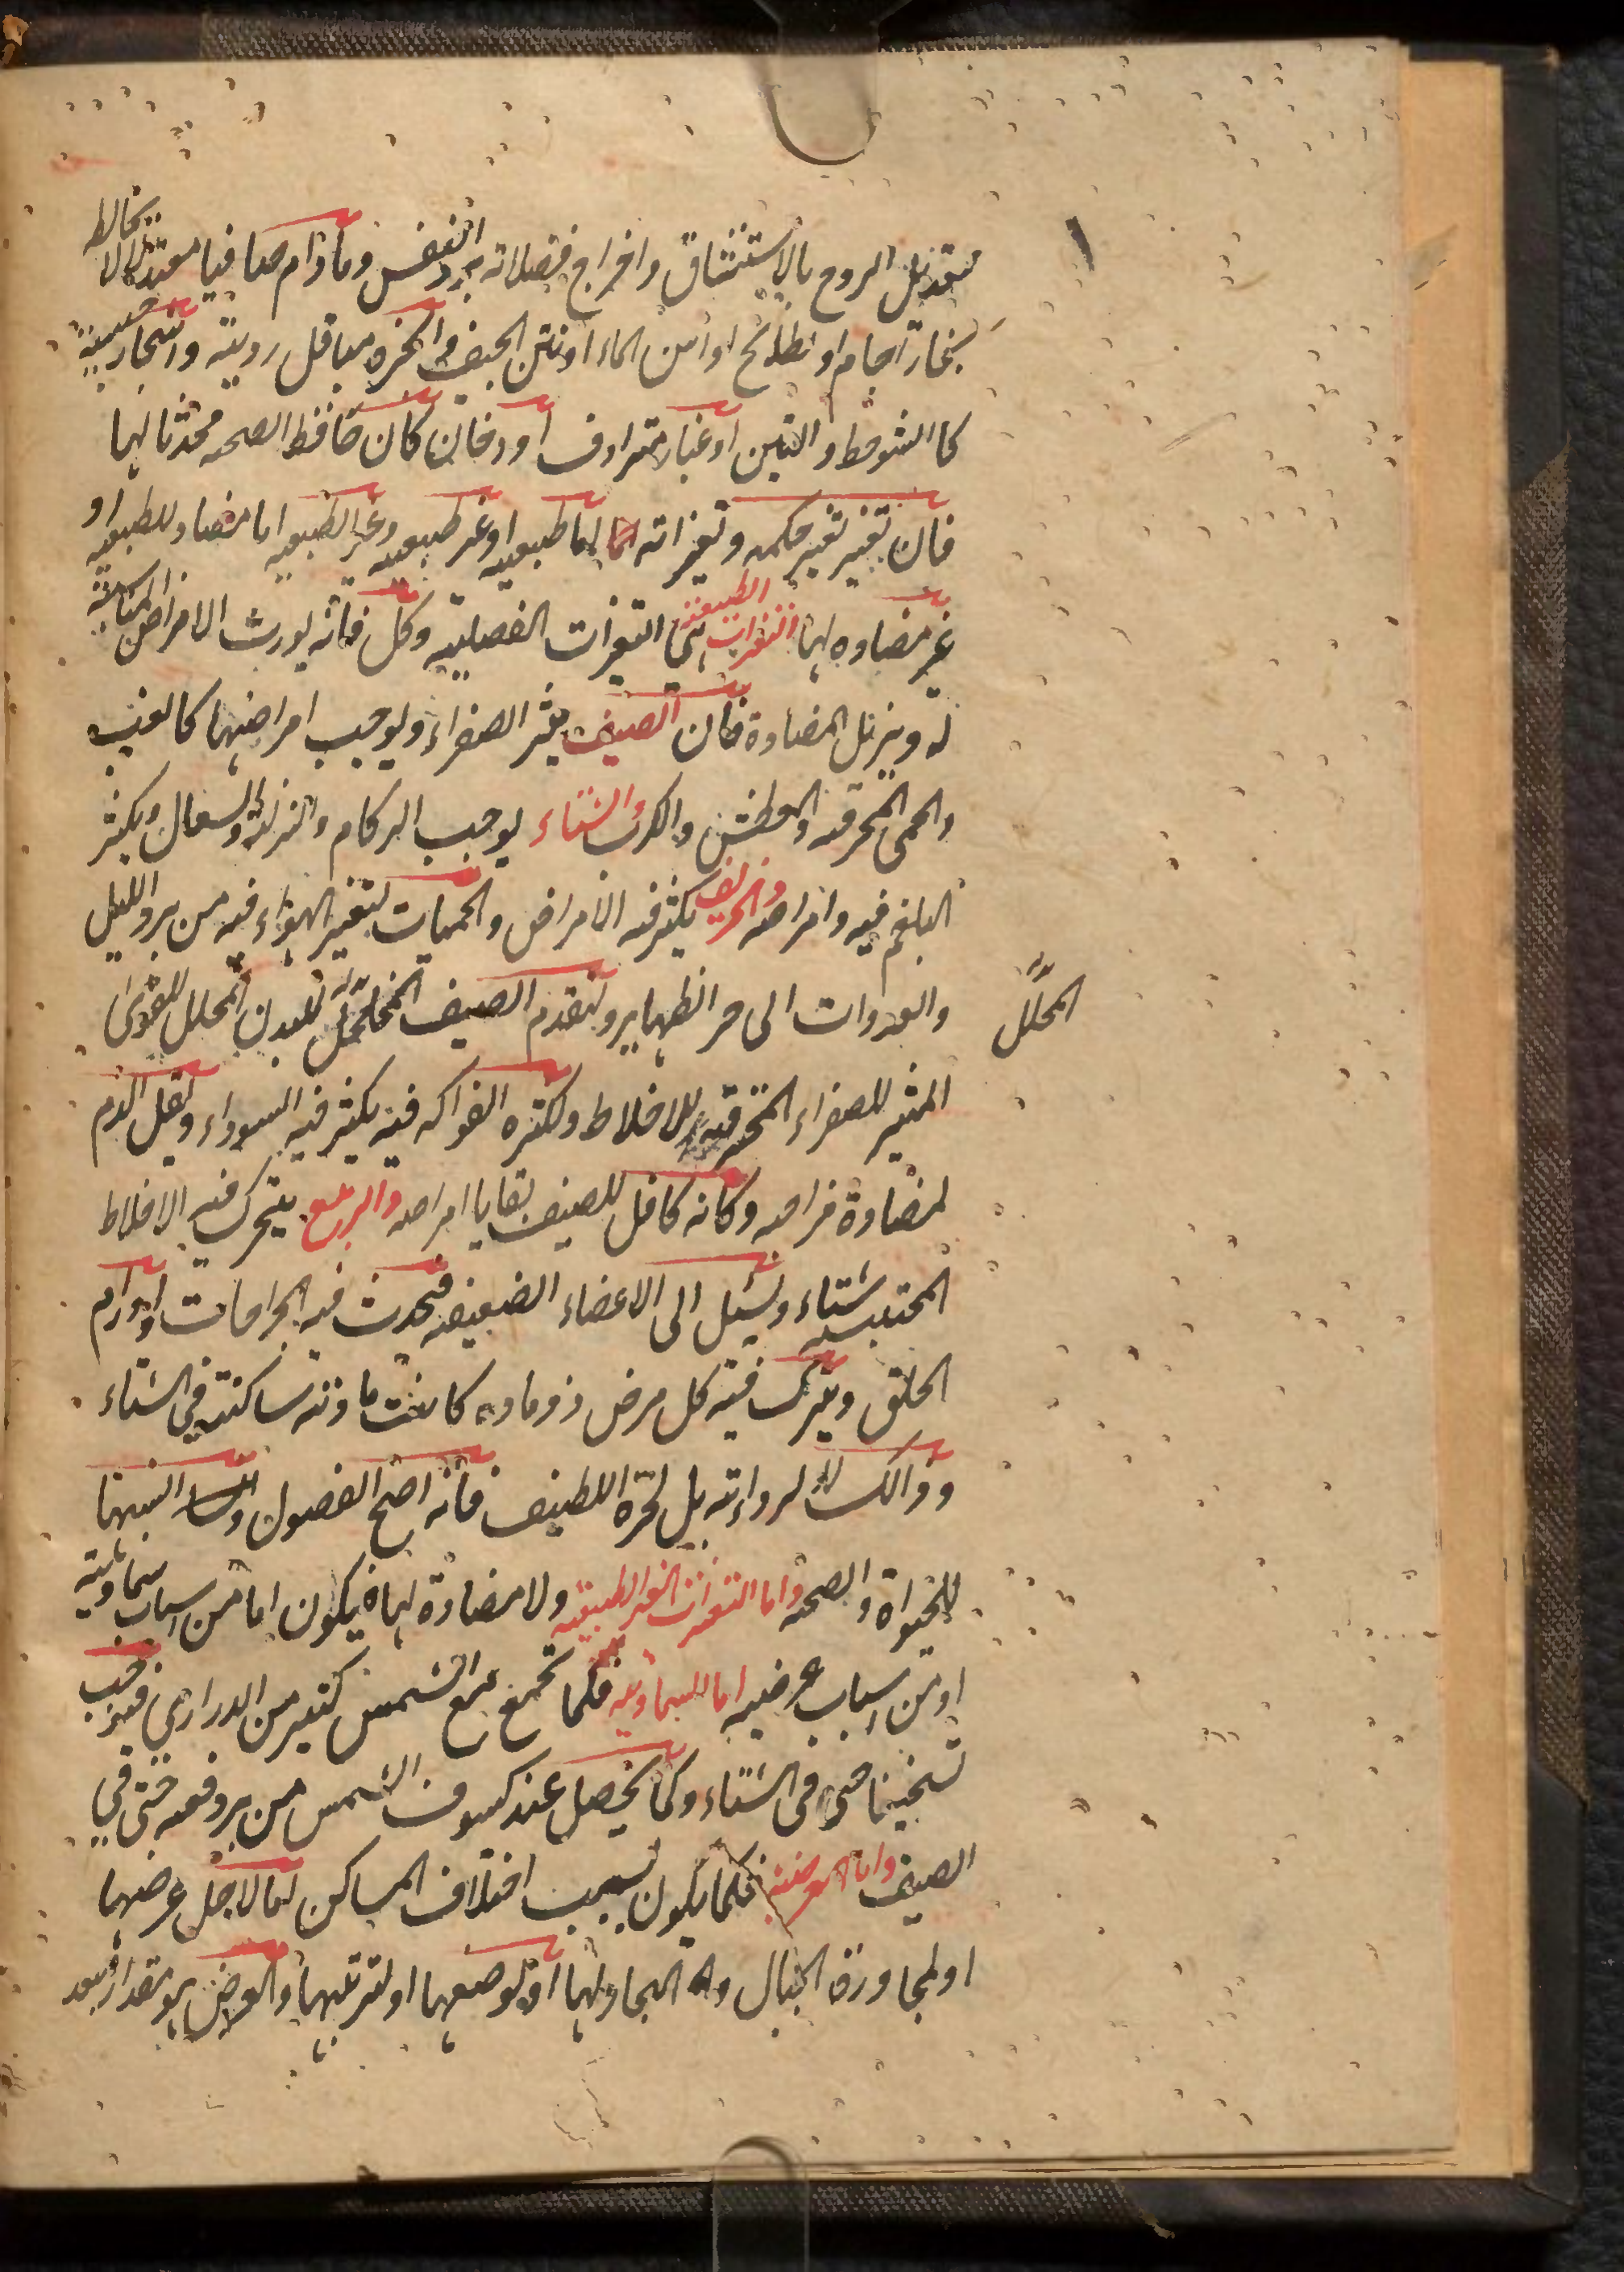 لتعديل الروح بالاستنشاق واخراج فضلاته برد النفس وما دام صافيا معتدلا لا يخالطه
بخار اجام او بطائح او اسن الماء او نتن الجيف و ابخره مباقل رديئة واشجار خبيثة
كا الشوحط والتين او غبار مترادف او دخان كان حافظ الصحه محدثا لها
فان تغير تغير حكمه وتغيراته اما طبيعيه او غير طبيعيه وغير الطبيعيه اما مضاد للطبيعيه او
غير مضاده لها التغيرات الطبيعية هى التغيرات الفصلية وكل فانه يورث الامراض المناسبة
له ويزيل المضادة فان الصيف يثير الصفراء ويوجب امراضها كالغب
والحمى المحرقه والعطش والكرب والشتاء يوجب الزكام والنزلة والسعال ويكثر
البلغم فيه وامراضه والخريف يكثر فيه الامراض والحميات لتغير الهواء فيه من برد الليل
والغدوات الى حر الظهاير وتقدم الصيف المخلخل للبدن المحلل للقوى
المحلل
المثير للصفراء المحرقه للاخلاط ولكثره الفواكه فيه يكثر فيه السوداء ويقل الدم
لمضادة مزاجه وكانه كافل للصيف بقايا امراضه والربيع يتحرك فيه الاخلاط
المحتبسه شتاء ويسيل الى الاعضاء الضعيفه فيحدث فيه الجراحات واورام
الحلق ويتحرك فيه كل مرض ذو ماده كانت مادته ساكنة في الشتاء
وذالك لا لرداءته بل لحره اللطيف فانه اصح الفصول وانسبها
للحيواة والصحه واما التغيرات الغير الطبيعيه ولا مضادة لها فيكون اما من اسباب سماوية
او من اسباب عرضيه اما السماويه فكما تجمع مع الشمس كثير من الدرارى فيوجب
تسخينا حتى فى الشتاء وكما يحصل عند كسوف الشمس من برد دفعه حتى في
الصيف واما العرضية فكما يكون بسبب اختلاف المساكن اما لاجل عرضها
او لمجاورة الجبال والبحار لها او لوضعها او لتربتها والعرض هو مقدار بعد